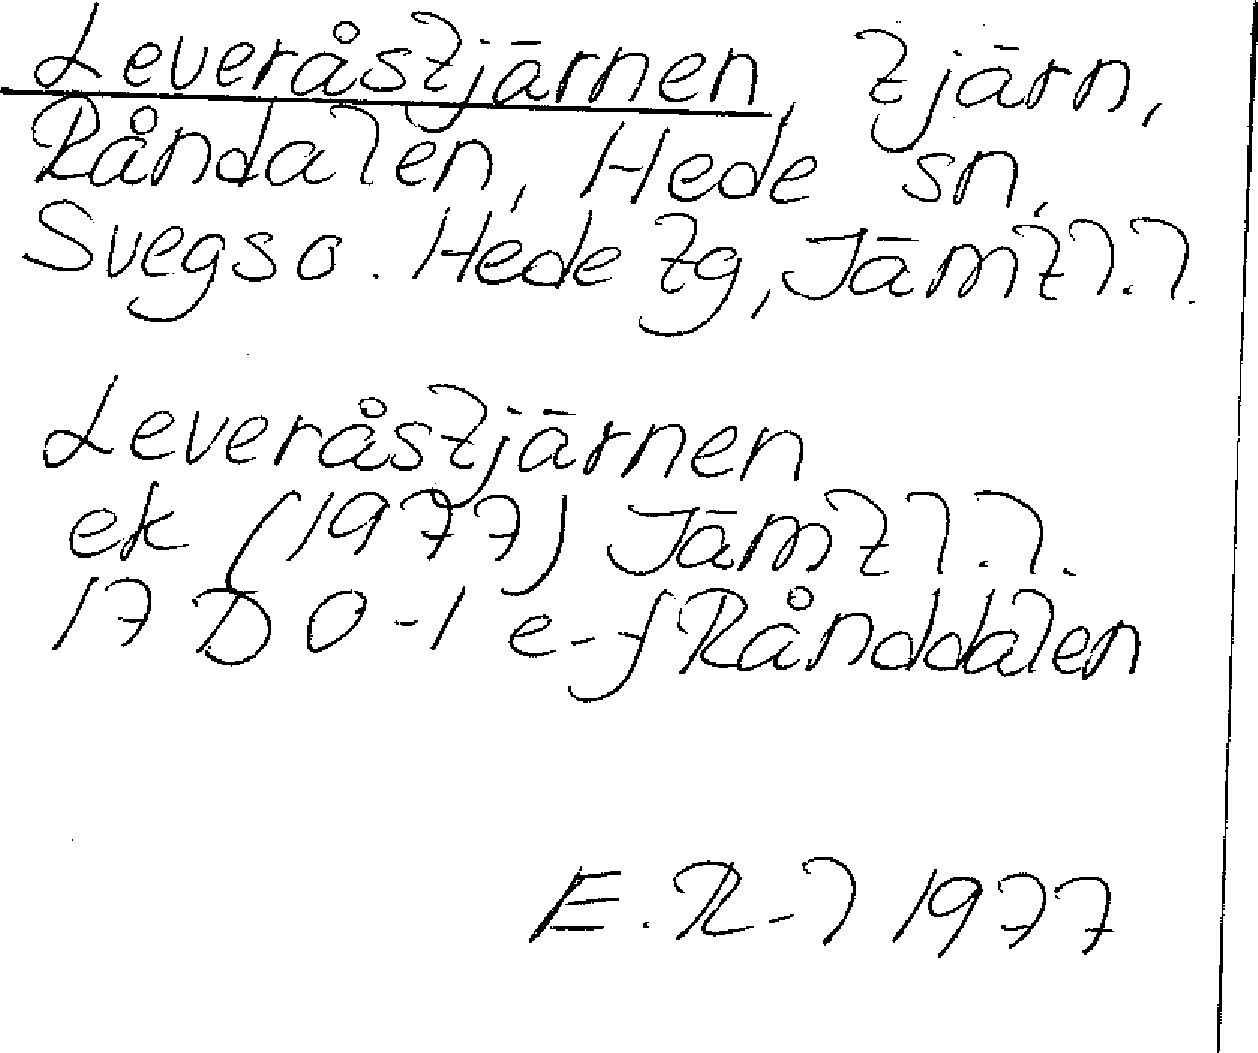 Leveråstjärnen, tjärn,
Råndalen, Hede sn,
Svegs o. Hede tg, Jämtl. l.
Leveråstjärnen
ek (1977) Jämtl. l.
17 D 0-1 e-f Rånddalen
E. R-l 1977